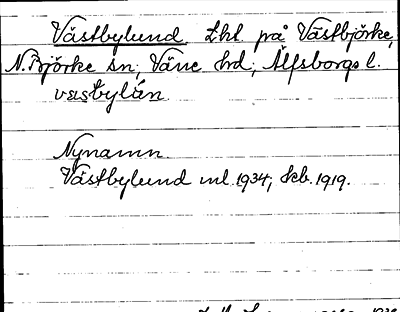 Västbylund. Lht på Västbjörke,
N. Björke sn, Väne hd, Älfsborgs l.
væstbylún.
Nynamn.
Västbylund ml. 1934, skb. 1919.